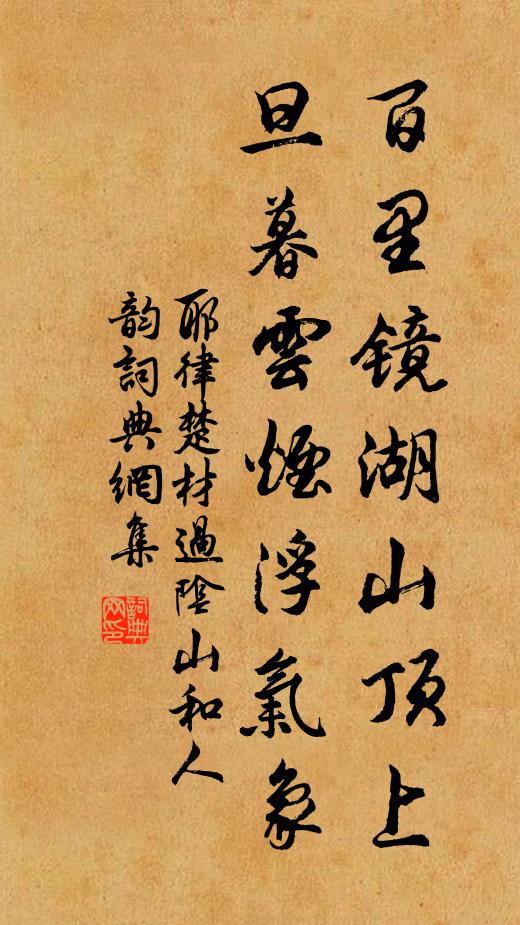 百里镜湖山顶上
旦暮雲煙浮氣象
耶律楚材過陰山和人
韵詞典網集
詞典网印